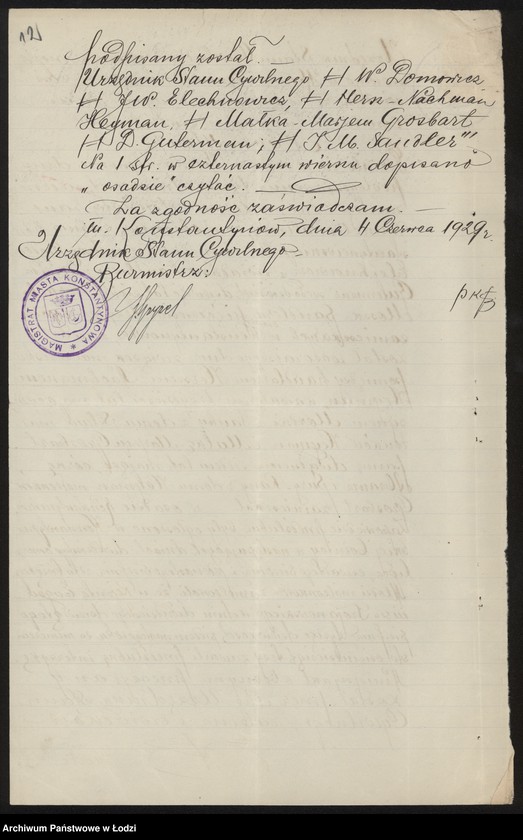 12
podpisany został.
Urzędnik Stanu Cywilnego /-/ W. Domowicz
/-/ J.W. Elechnowicz, /-/ Hersz-Nachman
Heyman, /-/ Małka-Marjem Grosbart
/-/ D. Guterman; /-/ J. M. Sandler"
Na 1 str. w czternastym wierszu dopisano
„osadzie" czytać.
Za zgodność zaświadczam.
m. Konstantynów, dnia 4 Czerwca 1929 r.
Urzędnik Stanu Cywilnego
Burmistrz:
MAGISTRAT MIASTA KONSTANTYNOWA
Archiwum Państwowe w Łodzi